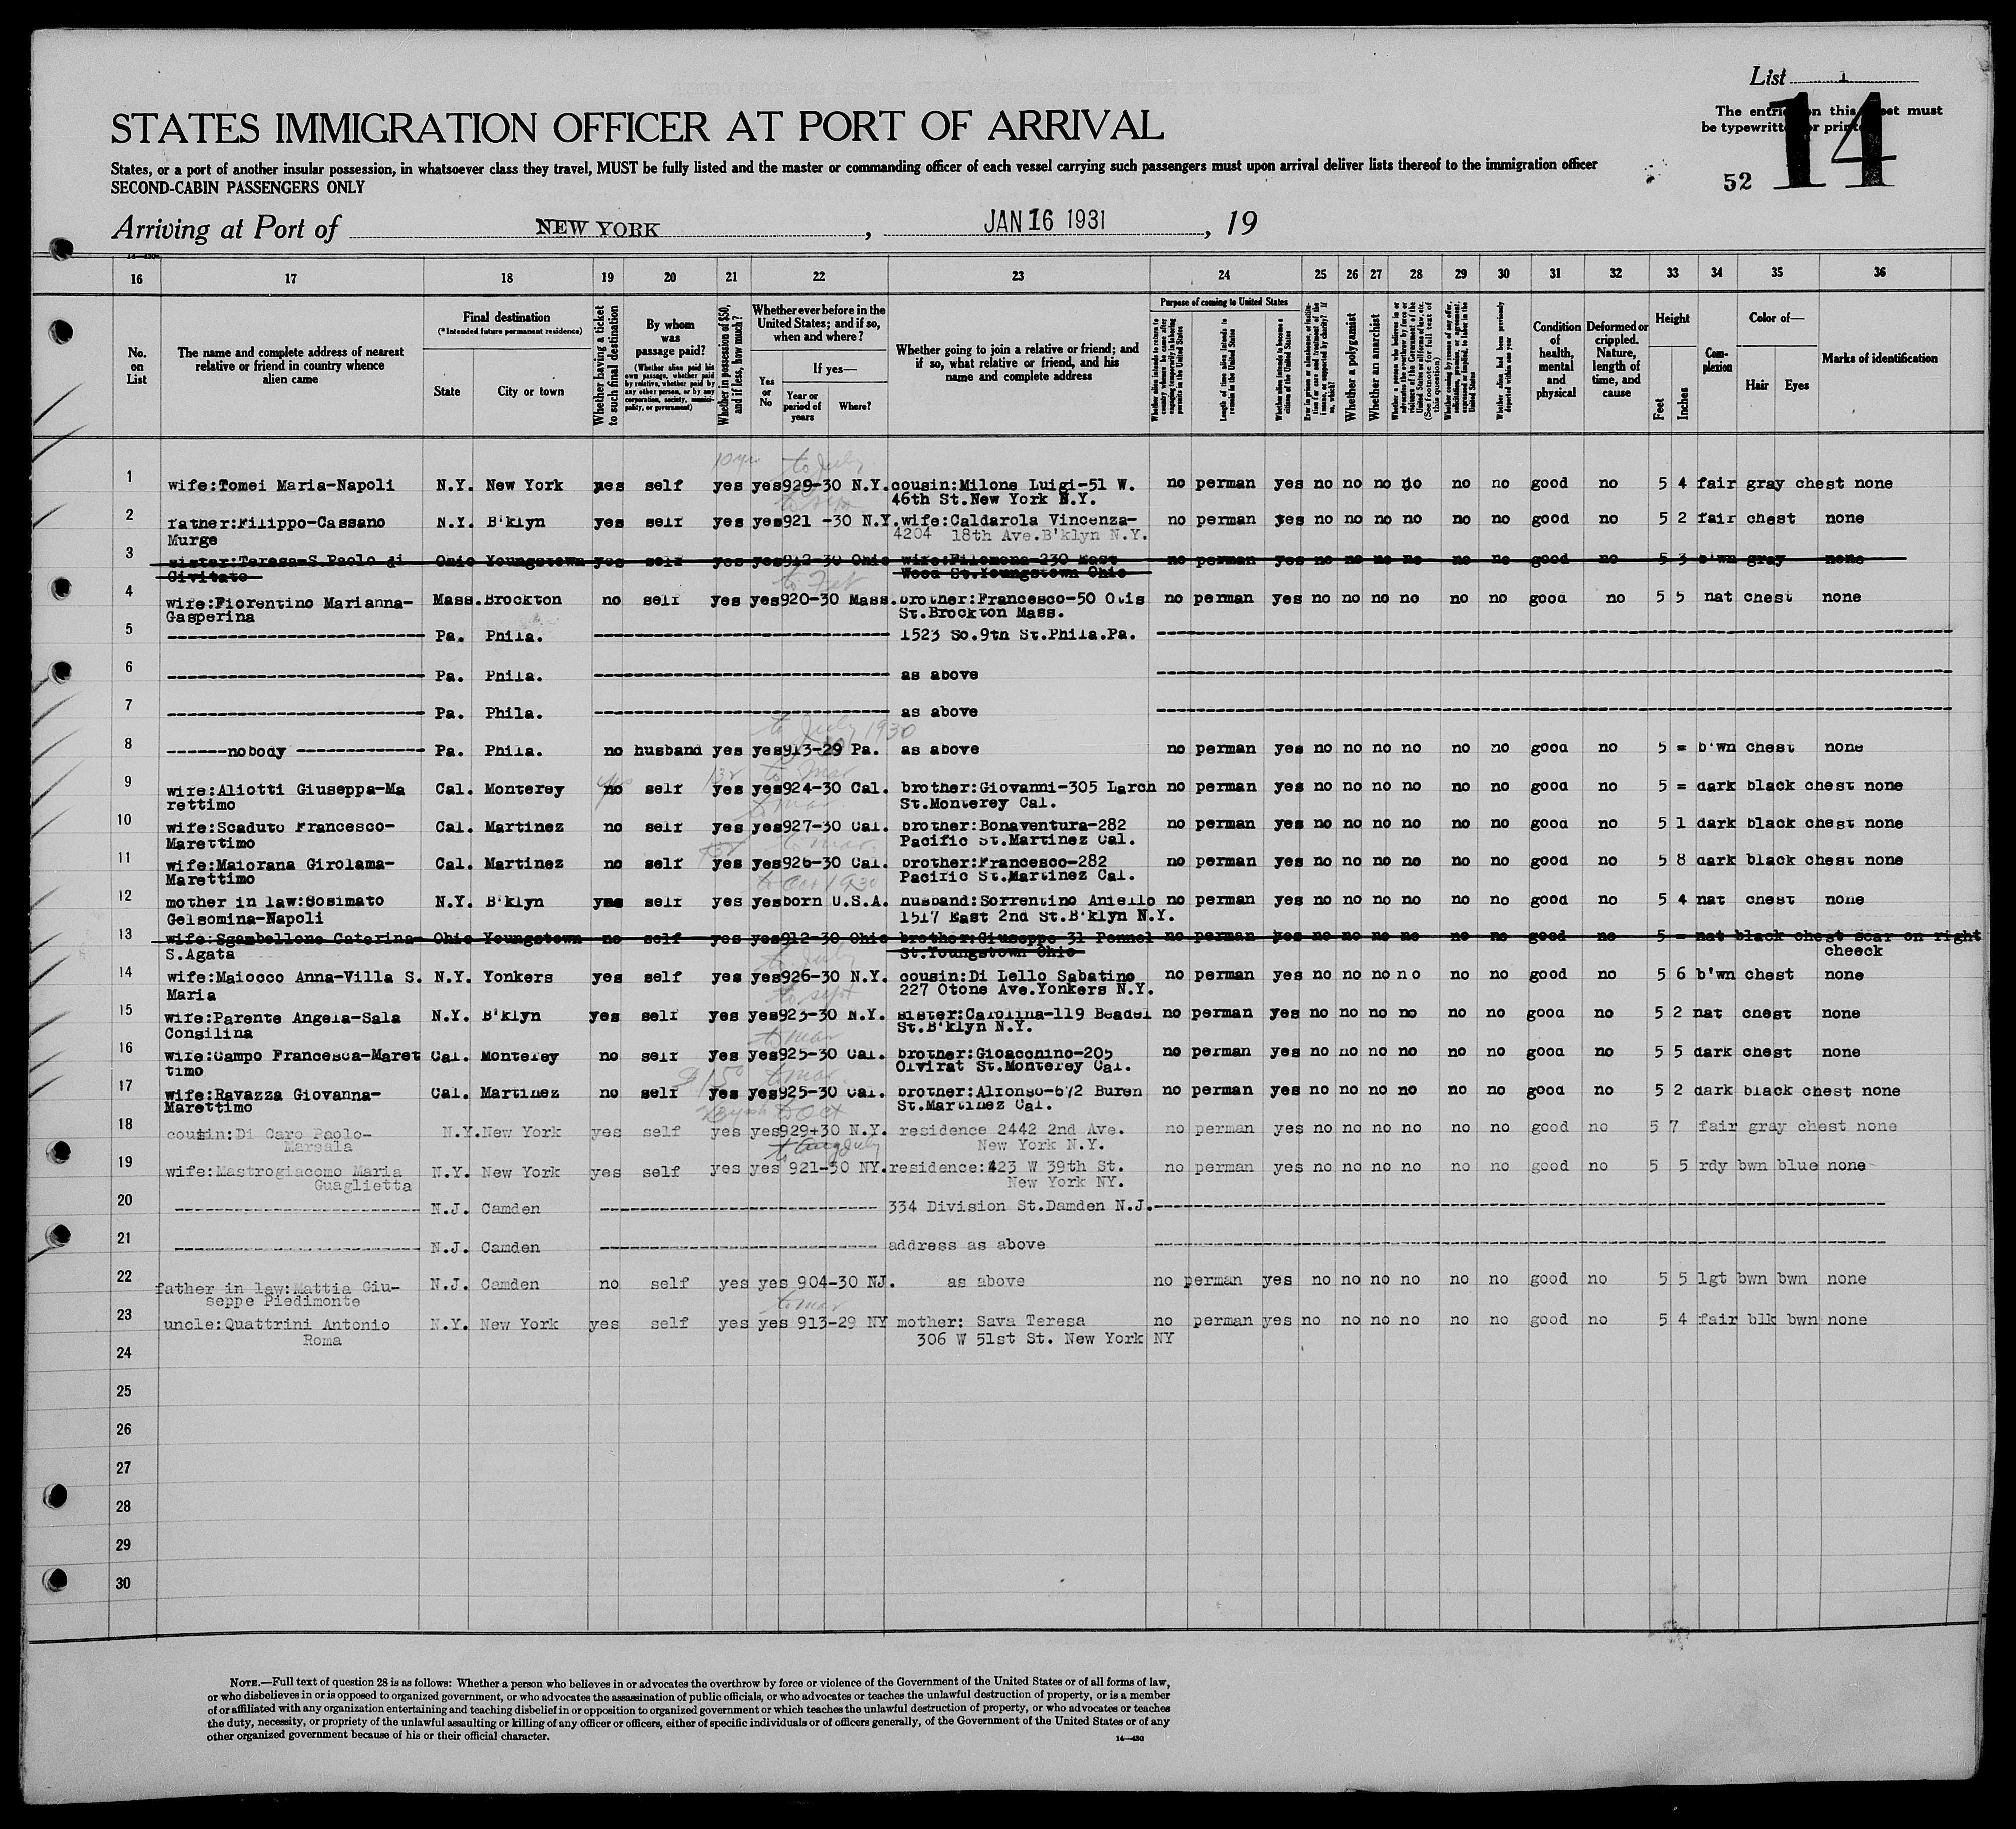 List 1
The entries on this sheet must
be typewritten or printed
14
52
STATES IMMIGRATION OFFICER AT PORT OF ARRIVAL
States, or a port of another insular possession, in whatsoever class they travel, MUST be fully listed and the master or commanding officer of each vessel carrying such passengers must upon arrival deliver lists thereof to the immigration officer
SECOND-CABIN PASSENGERS ONLY
Arriving at Port of NEW YORK, JAN 16 1931, 19
16 17 18 19 20 21 22 23 24 25 26 27 28 29 30 31 32 33 34 35 36
No. on List
The name and complete address of nearest relative or friend in country whence alien came
Final destination
(*Intended future permanent residence)
State
City or town
Whether having a ticket to such final destination
By whom was passage paid?
(Whether alien paid his own passage, whether paid by relative, whether paid by any other person, or by any corporation, society, municipality, or government)
Whether in possession of $50, and if less, how much?
Whether ever before in the United States; and if so, when and where?
Yes or No
If yes—
Year or period of years
Where?
Whether going to join a relative or friend; and if so, what relative or friend, and his name and complete address
Purpose of coming to United States
Whether alien intends to return to country whence he came after engaging temporarily in laboring pursuits in the United States
Length of time alien intends to remain in the United States
Whether alien intends to become a citizen of the United States
Whether a polygamist
Whether an anarchist
Whether alien had been previously deported within one year
Condition of health, mental and physical
Deformed or crippled. Nature, length of time, and cause
Height
Feet
Inches
Complexion
Color of—
Hair
Eyes
Marks of identification
10 yrs to July
1 wife:Tomei Maria-Napoli N.Y. New York yes self yes yes 929-30 N.Y. cousin:Milone Luigi-51 W. no perman yes no no no no no no good no 5 4 fair gray chest none
46th St.New York N.Y.
2 father:Filippo-Cassano N.Y. B'klyn yes self yes yes 921 -30 N.Y. wife:Caldarola Vincenza- no perman yes no no no no no no good no 5 2 fair chest none
Murge 4204 18th Ave.B'klyn N.Y.
3 sister:Teresa-S.Paolo di Ohio Youngstown yes self yes yes 912-30 Ohio wife:Filomena-230 East no perman yes no no no no no no good no 5 3 b'wn gray none
Civitate Wood St.Youngstown Ohio
4 wife:Fiorentino Marianna- Mass. Brockton no self yes yes 920-30 Mass. brother:Francesco-50 Otis no perman yes no no no no no no good no 5 5 nat chest none
Gasperina St.Brockton Mass.
5 Pa. Phila. 1523 So.9th St.Phila.Pa.
6 Pa. Phila. as above
7 Pa. Phila. as above
to July 1930
8 nobody Pa. Phila. no husband yes yes 913-29 Pa. as above no perman yes no no no no no no good no 5 = b'wn chest none
yes to Mar
9 wife:Aliotti Giuseppa-Ma Cal. Monterey no self yes yes 924-30 Cal. brother:Giovanni-305 Larch no perman yes no no no no no no good no 5 = dark black chest none
rettimo St.Monterey Cal.
to mar
10 wife:Scaduto Francesco- Cal. Martinez no self yes yes 927-30 Cal. brother:Bonaventura-282 no perman yes no no no no no no good no 5 1 dark black chest none
Marettimo Pacific St.Martinez Cal.
to mar.
11 wife:Maiorana Girolama- Cal. Martinez no self yes yes 926-30 Cal. brother:Francesco-282 no perman yes no no no no no no good no 5 8 dark black chest none
Marettimo Pacific St.Martinez Cal.
to Oct 1930
12 mother in law:Sosimato N.Y. B'klyn yes self yes yes born U.S.A. husband:Sorrentino Aniello no perman yes no no no no no no good no 5 4 nat chest none
Gelsomina-Napoli 1517 East 2nd St.B'klyn N.Y.
13 wife:Sgambellone Caterina- Ohio Youngstown no self yes yes 912-30 Ohio brother:Giuseppe-31 Pennel no perman yes no no no no no no good no 5 = nat black chest scar on right
S.Agata St.Youngstown Ohio cheeck
to July
14 wife:Maiocco Anna-Villa S. N.Y. Yonkers yes self yes yes 926-30 N.Y. cousin:Di Lello Sabatino no perman yes no no no no no no good no 5 6 b'wn chest none
Maria 227 Otone Ave.Yonkers N.Y.
to sept
15 wife:Parente Angela-Sala N.Y. B'klyn yes self yes yes 923-30 N.Y. sister:Carolina-119 Beadel no perman yes no no no no no no good no 5 2 nat chest none
Consilina St.B'klyn N.Y.
to mar
16 wife:Campo Francesca-Maret Cal. Monterey no self yes yes 925-30 Cal. brother:Gioacchino-205 no perman yes no no no no no no good no 5 5 dark chest none
timo Olvirat St.Monterey Cal.
$150 to mar.
17 wife:Ravazza Giovanna- Cal. Martinez no self yes yes 925-30 Cal. brother:Alfonso-672 Buren no perman yes no no no no no no good no 5 2 dark black chest none
Marettimo St.Martinez Cal.
to Oct
18 cousin:Di Caro Paolo- N.Y. New York yes self yes yes 929+30 N.Y. residence 2442 2nd Ave. no perman yes no no no no no no good no 5 7 fair gray chest none
Marsala New York N.Y.
to Aug July
19 wife:Mastrogiacomo Maria N.Y. New York yes self yes yes 921-30 NY. residence:423 W 39th St. no perman yes no no no no no no good no 5 5 rdy bwn blue none
Guaglietta New York NY.
20 N.J. Camden 334 Division St.Damden N.J.
21 N.J. Camden address as above
22 father in law:Mattia Giu- N.J. Camden no self yes yes 904-30 NJ. as above no perman yes no no no no no no good no 5 5 lgt bwn bwn none
seppe Piedimonte
to mar
23 uncle:Quattrini Antonio N.Y. New York yes self yes yes 913-29 NY mother: Sava Teresa no perman yes no no no no no no good no 5 4 fair blk bwn none
Roma 306 W 51st St. New York NY
24
25
26
27
28
29
30
NOTE.—Full text of question 28 is as follows: Whether a person who believes in or advocates the overthrow by force or violence of the Government of the United States or of all forms of law,
or who disbelieves in or is opposed to organized government, or who advocates the assassination of public officials, or who advocates or teaches the unlawful destruction of property, or is a member
of or affiliated with any organization entertaining and teaching disbelief in or opposition to organized government or which teaches the unlawful destruction of property, or who advocates or teaches
the duty, necessity, or propriety of the unlawful assaulting or killing of any officer or officers, either of specific individuals or of officers generally, of the Government of the United States or of any
other organized government because of his or their official character.
14—430